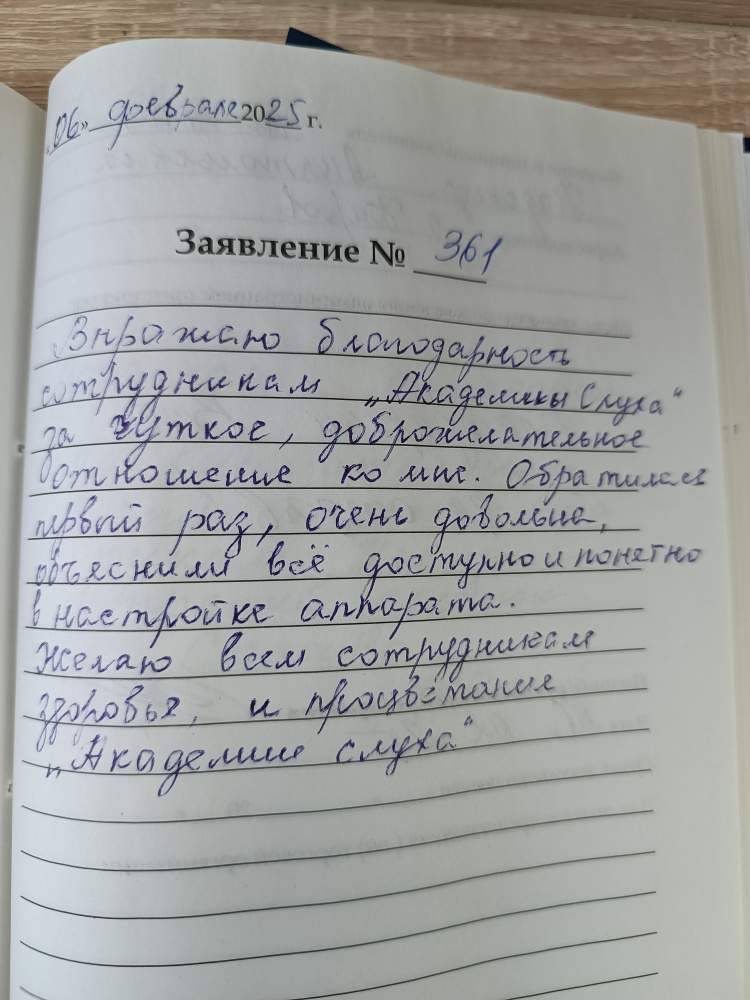 «06» февраля 2025 г.
Заявление № 361
Выражаю благодарность
сотрудникам „Академики Слуха“
за чуткое, доброжелательное
отношение ко мне. Обратилась
первый раз, очень довольна,
объяснили всё доступно и понятно
в настройке аппарата.
Желаю всем сотрудникам
здоровья, и процветания
„Академии слуха“